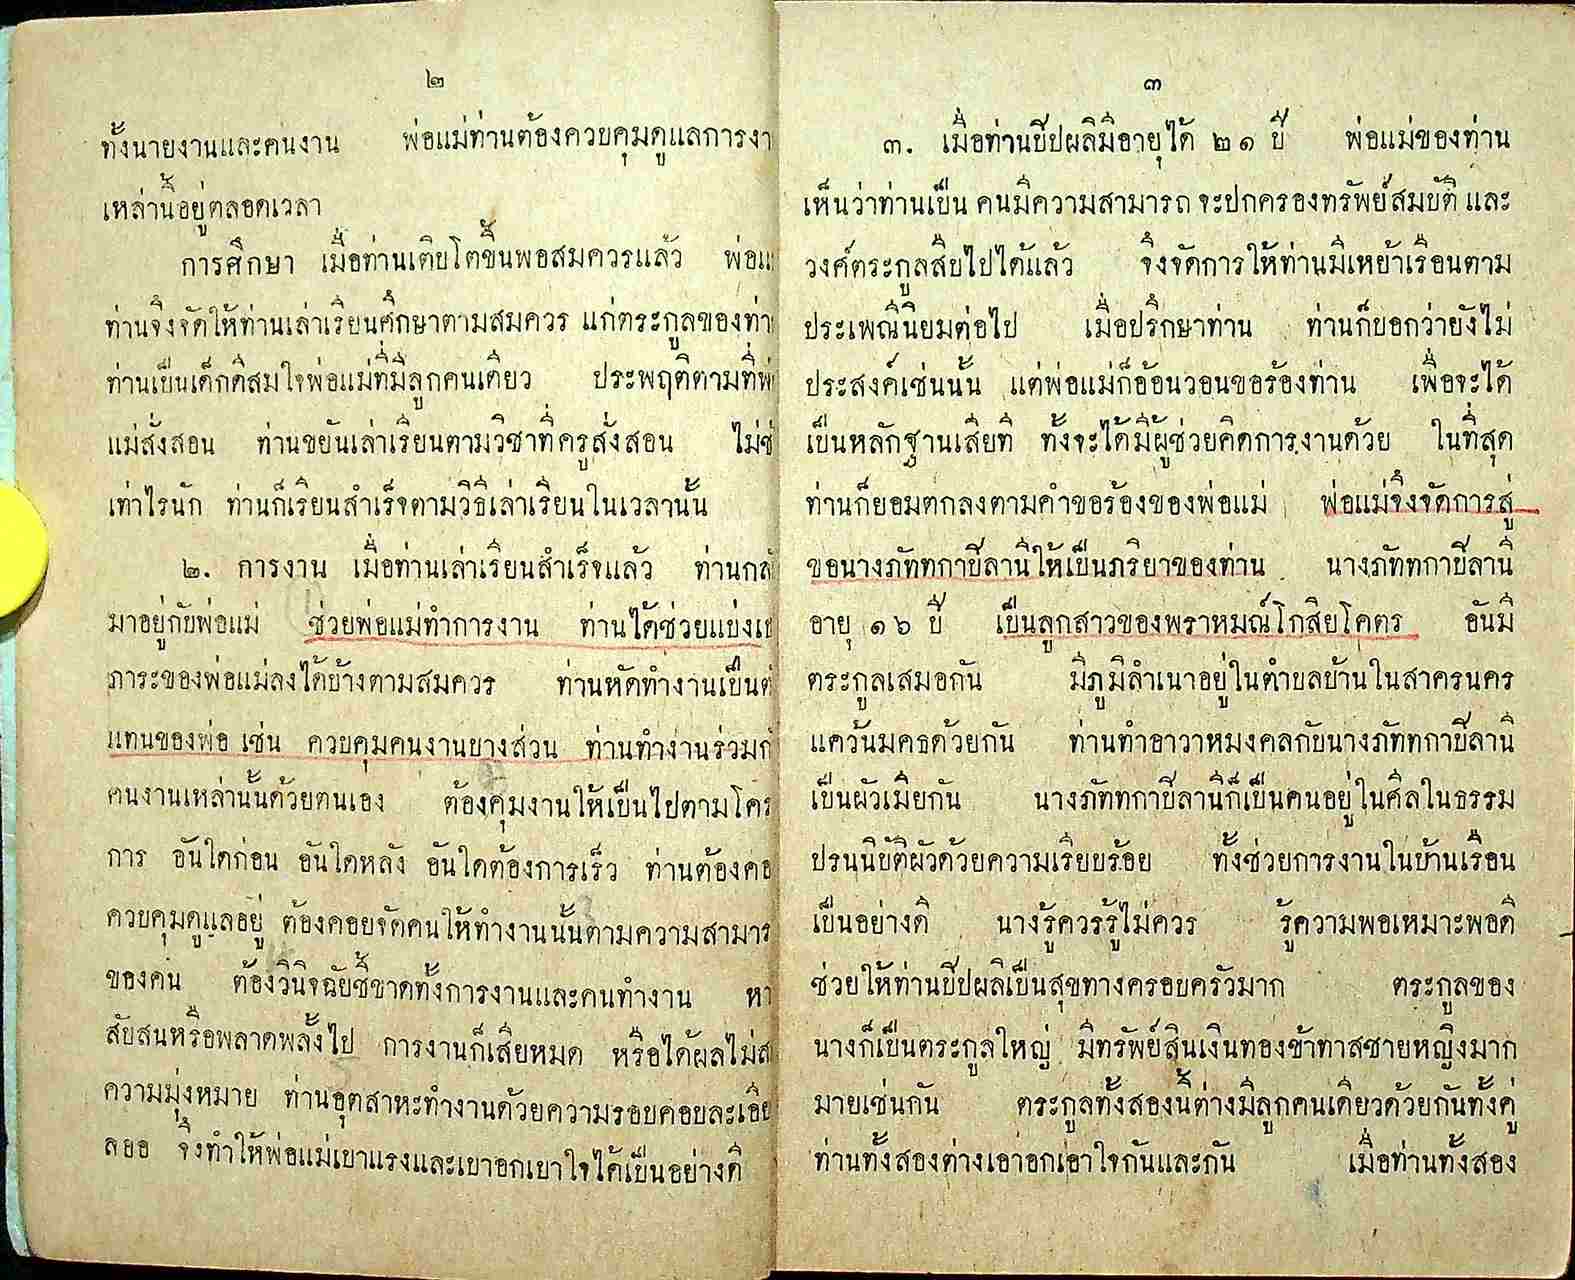 ๒
ทั้งนายงานและคนงาน พ่อแม่ท่านต้องควบคุมดูแลการงา
เหล่านี้อยู่ตลอดเวลา
การศึกษา เมื่อท่านเติบโตขึ้นพอสมควรแล้ว พ่อแ
ท่านจึงจัดให้ท่านเล่าเรียนศึกษาตามสมควร แก่ตระกูลของท่า
ท่านเป็นเด็กดีสมใจพ่อแม่ที่มีลูกคนเดียว ประพฤติตามที่พ่
แม่สั่งสอน ท่านขยันเล่าเรียนตามวิชาที่ครูสั่งสอน ไม่ช้
เท่าไรนัก ท่านก็เรียนสำเร็จตามวิธีเล่าเรียนในเวลานั้น
๒. การงาน เมื่อท่านเล่าเรียนสำเร็จแล้ว ท่านกลั
มาอยู่กับพ่อแม่ ช่วยพ่อแม่ทำการงาน ท่านได้ช่วยแบ่งเบ
ภาระของพ่อแม่ลงได้บ้างตามสมควร ท่านหัดทำงานเป็นตั
แทนของพ่อ เช่น ควบคุมคนงานบางส่วน ท่านทำงานร่วมกั
คนงานเหล่านั้นด้วยตนเอง ต้องคุมงานให้เป็นไปตามโคร
การ อันใดก่อน อันใดหลัง อันใดต้องการเร็ว ท่านต้องคอ
ควบคุมดูแลอยู่ ต้องคอยจัดคนให้ทำงานนั้นตามความสามาร
ของคน ต้องวินิจฉัยชี้ขาดทั้งการงานและคนทำงาน หา
สับสนหรือพลาดพลั้งไป การงานก็เสียหมด หรือได้ผลไม่ส
ความมุ่งหมาย ท่านอุตสาหะทำงานด้วยความรอบคอบละเอีย
ลออ จึงทำให้พ่อแม่เบาแรงและเบาอกเบาใจได้เป็นอย่างดี
๓
๓. เมื่อท่านปิปผลิมีอายุได้ ๒๑ ปี พ่อแม่ของท่าน
เห็นว่าท่านเป็น คนมีความสามารถ จะปกครองทรัพย์สมบัติ และ
วงศ์ตระกูลสืบไปได้แล้ว จึงจัดการให้ท่านมีเหย้าเรือนตาม
ประเพณีนิยมต่อไป เมื่อปรึกษาท่าน ท่านก็บอกว่ายังไม่
ประสงค์เช่นนั้น แต่พ่อแม่ก็อ้อนวอนขอร้องท่าน เพื่อจะได้
เป็นหลักฐานเสียที ทั้งจะได้มีผู้ช่วยคิดการงานด้วย ในที่สุด
ท่านก็ยอมตกลงตามคำขอร้องของพ่อแม่ พ่อแม่จึงจัดการสู่
ขอนางภัททกาปิลานีให้เป็นภริยาของท่าน นางภัททกาปิลานี
อายุ ๑๖ ปี เป็นลูกสาวของพราหมณ์โกสิยโคตร อันมี
ตระกูลเสมอกัน มีภูมิลำเนาอยู่ในตำบลบ้านในสาครนคร
แคว้นมคธด้วยกัน ท่านทำอาวาหมงคลกับนางภัททกาปิลานี
เป็นผัวเมียกัน นางภัททกาปิลานีก็เป็นคนอยู่ในศีลในธรรม
ปรนนิบัติผัวด้วยความเรียบร้อย ทั้งช่วยการงานในบ้านเรือน
เป็นอย่างดี นางรู้ควรรู้ไม่ควร รู้ความพอเหมาะพอดี
ช่วยให้ท่านปิปผลิเป็นสุขทางครอบครัวมาก ตระกูลของ
นางก็เป็นตระกูลใหญ่ มีทรัพย์สินเงินทองข้าทาสชายหญิงมาก
มายเช่นกัน ตระกูลทั้งสองนี้ต่างมีลูกคนเดียวด้วยกันทั้งคู่
ท่านทั้งสองต่างเอาอกเอาใจกันและกัน เมื่อท่านทั้งสอง